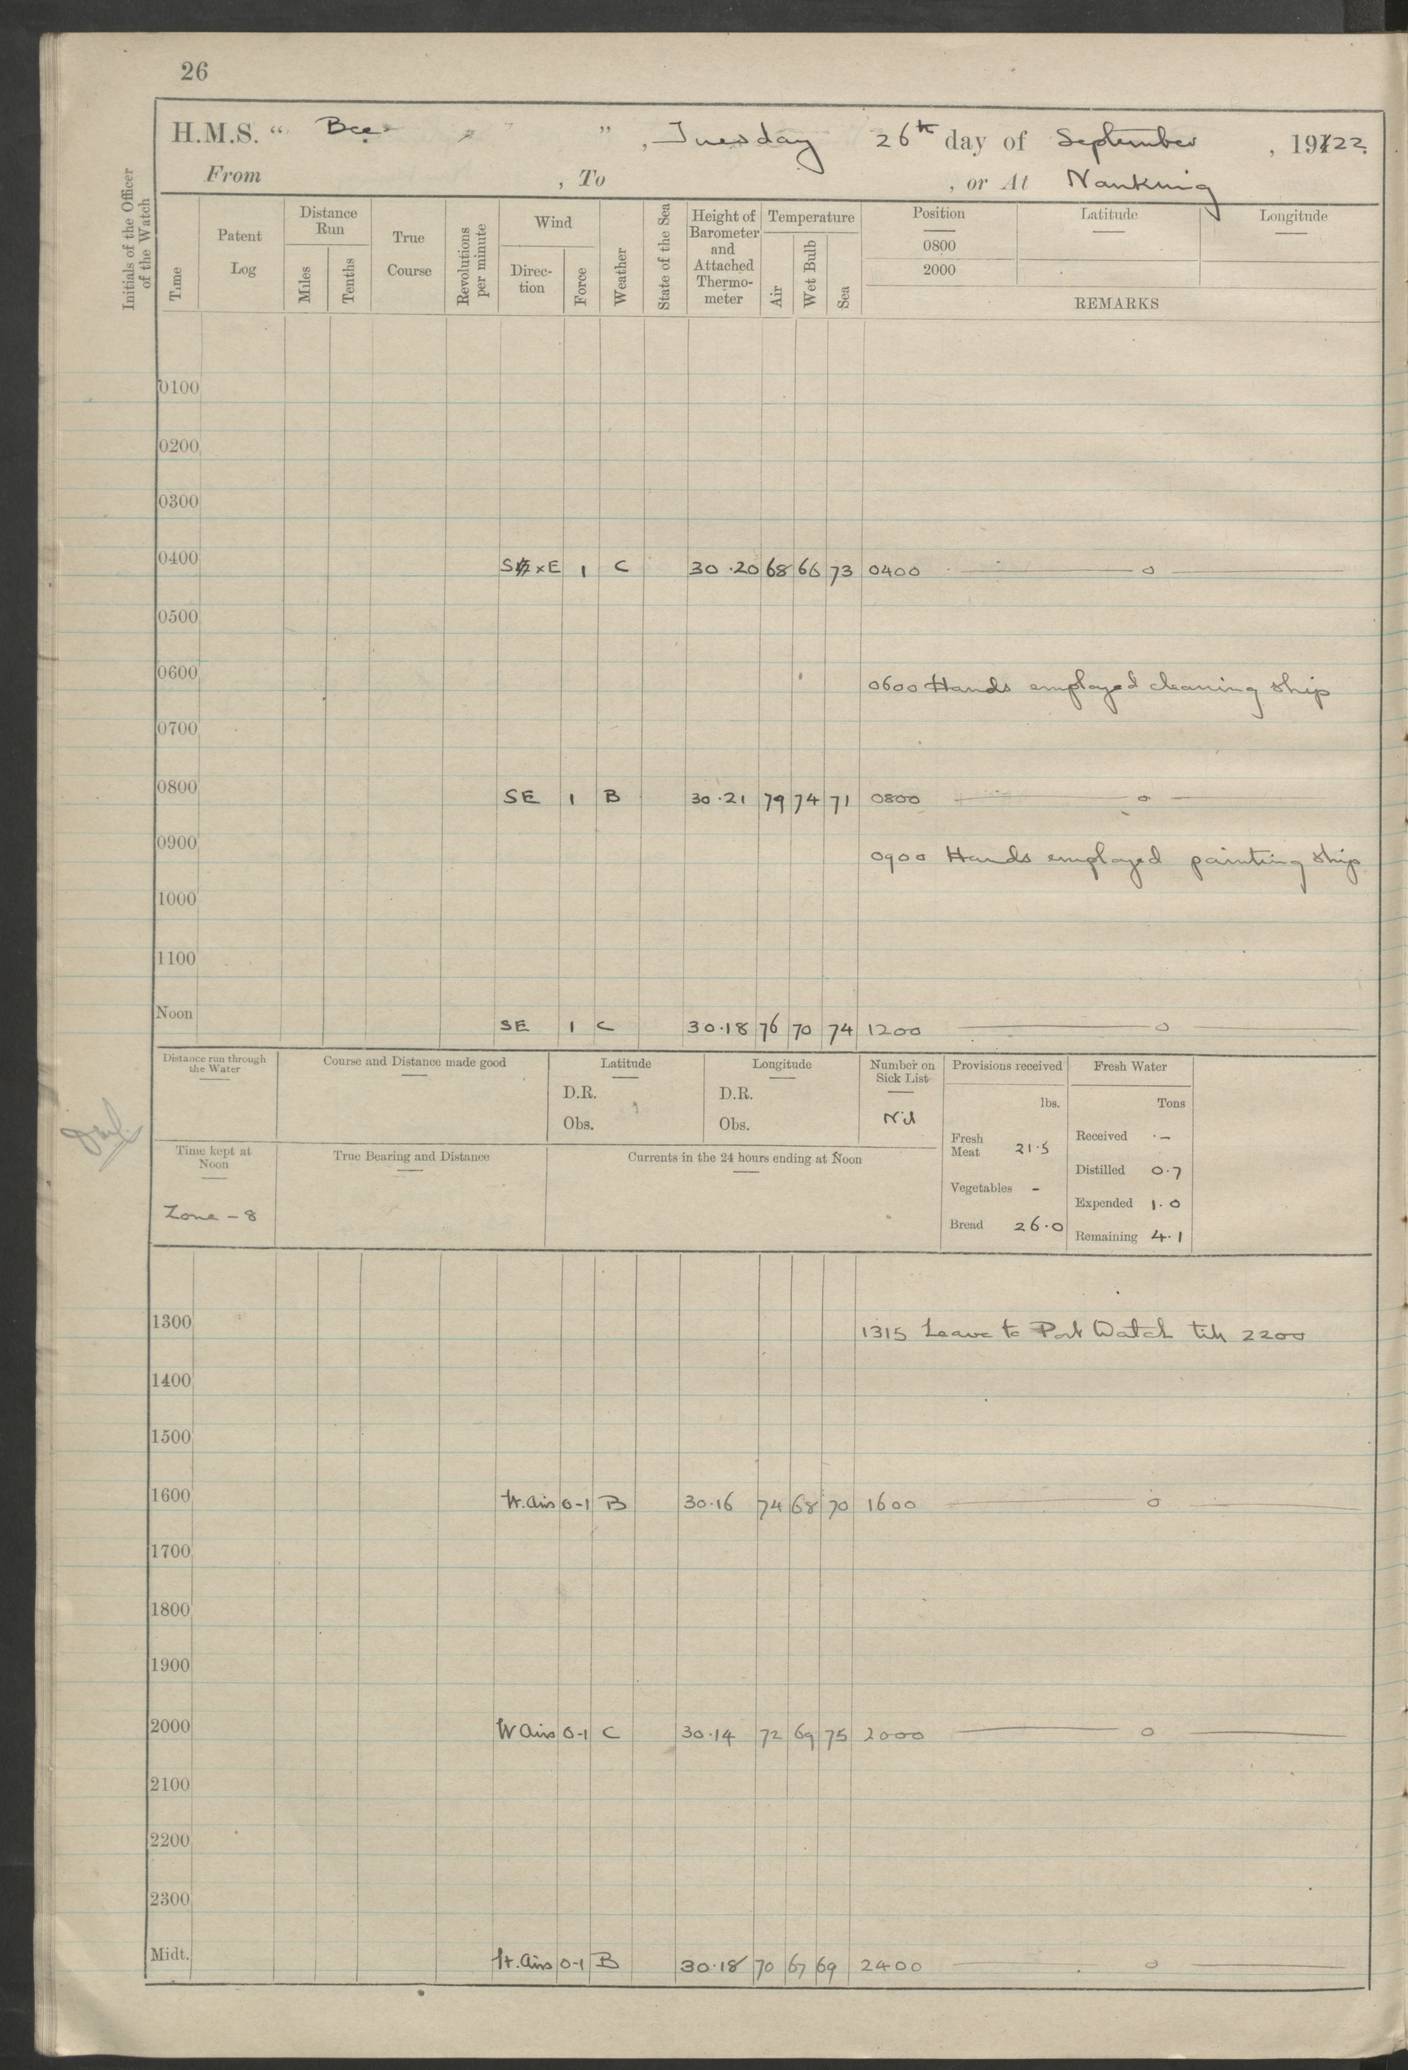 26
H.M.S. “ Bee ” , Tuesday 26th day of September , 1922.
From , To , or At Nanking
Initials of the Officer of the Watch
Time
Patent Log
Distance Run
Miles
Tenths
True Course
Revolutions per minute
Wind
Direc-tion
Force
Weather
State of the Sea
Height of Barometer and Attached Thermo-meter
Temperature
Air
Wet Bulb
Sea
Position Latitude Longitude
0800
2000
REMARKS
0100
0200
0300
0400 S x E 1 C 30.20 68 66 73 0400 —— o ——
0500
0600 0600 Hands employed cleaning ship
0700
0800 SE 1 B 30.21 79 74 71 0800 —— o ——
0900 0900 Hands employed painting ship
1000
1100
Noon SE 1 C 30.18 76 70 74 1200 —— o ——
Distance run through the Water
Course and Distance made good
Latitude
D.R.
Obs.
Longitude
D.R.
Obs.
Number on Sick List
Nil
Provisions received
lbs.
Fresh Meat 21.5
Vegetables -
Bread 26.0
Fresh Water
Tons
Received -
Distilled 0.7
Expended 1.0
Remaining 4.1
Time kept at Noon
Zone - 8
True Bearing and Distance
Currents in the 24 hours ending at Noon
1300 1315 Leave to Port Watch till 2200
1400
1500
1600 lt. airs 0-1 B 30.16 74 68 70 1600 —— o ——
1700
1800
1900
2000 lt airs 0-1 C 30.14 72 69 75 2000 —— o ——
2100
2200
2300
Midt. lt. airs 0-1 B 30.18 70 67 69 2400 —— o ——